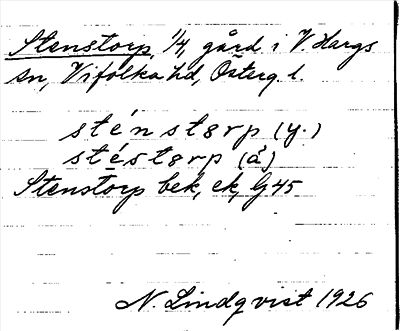 Stenstorp, 1/4, gård i V. Hargs
sn, Vifolka hd, Österg. l.
sténstørp (y.)
stéstørp (ä)
Stenstorp bek, ek, G 45
N. Lindqvist 1926